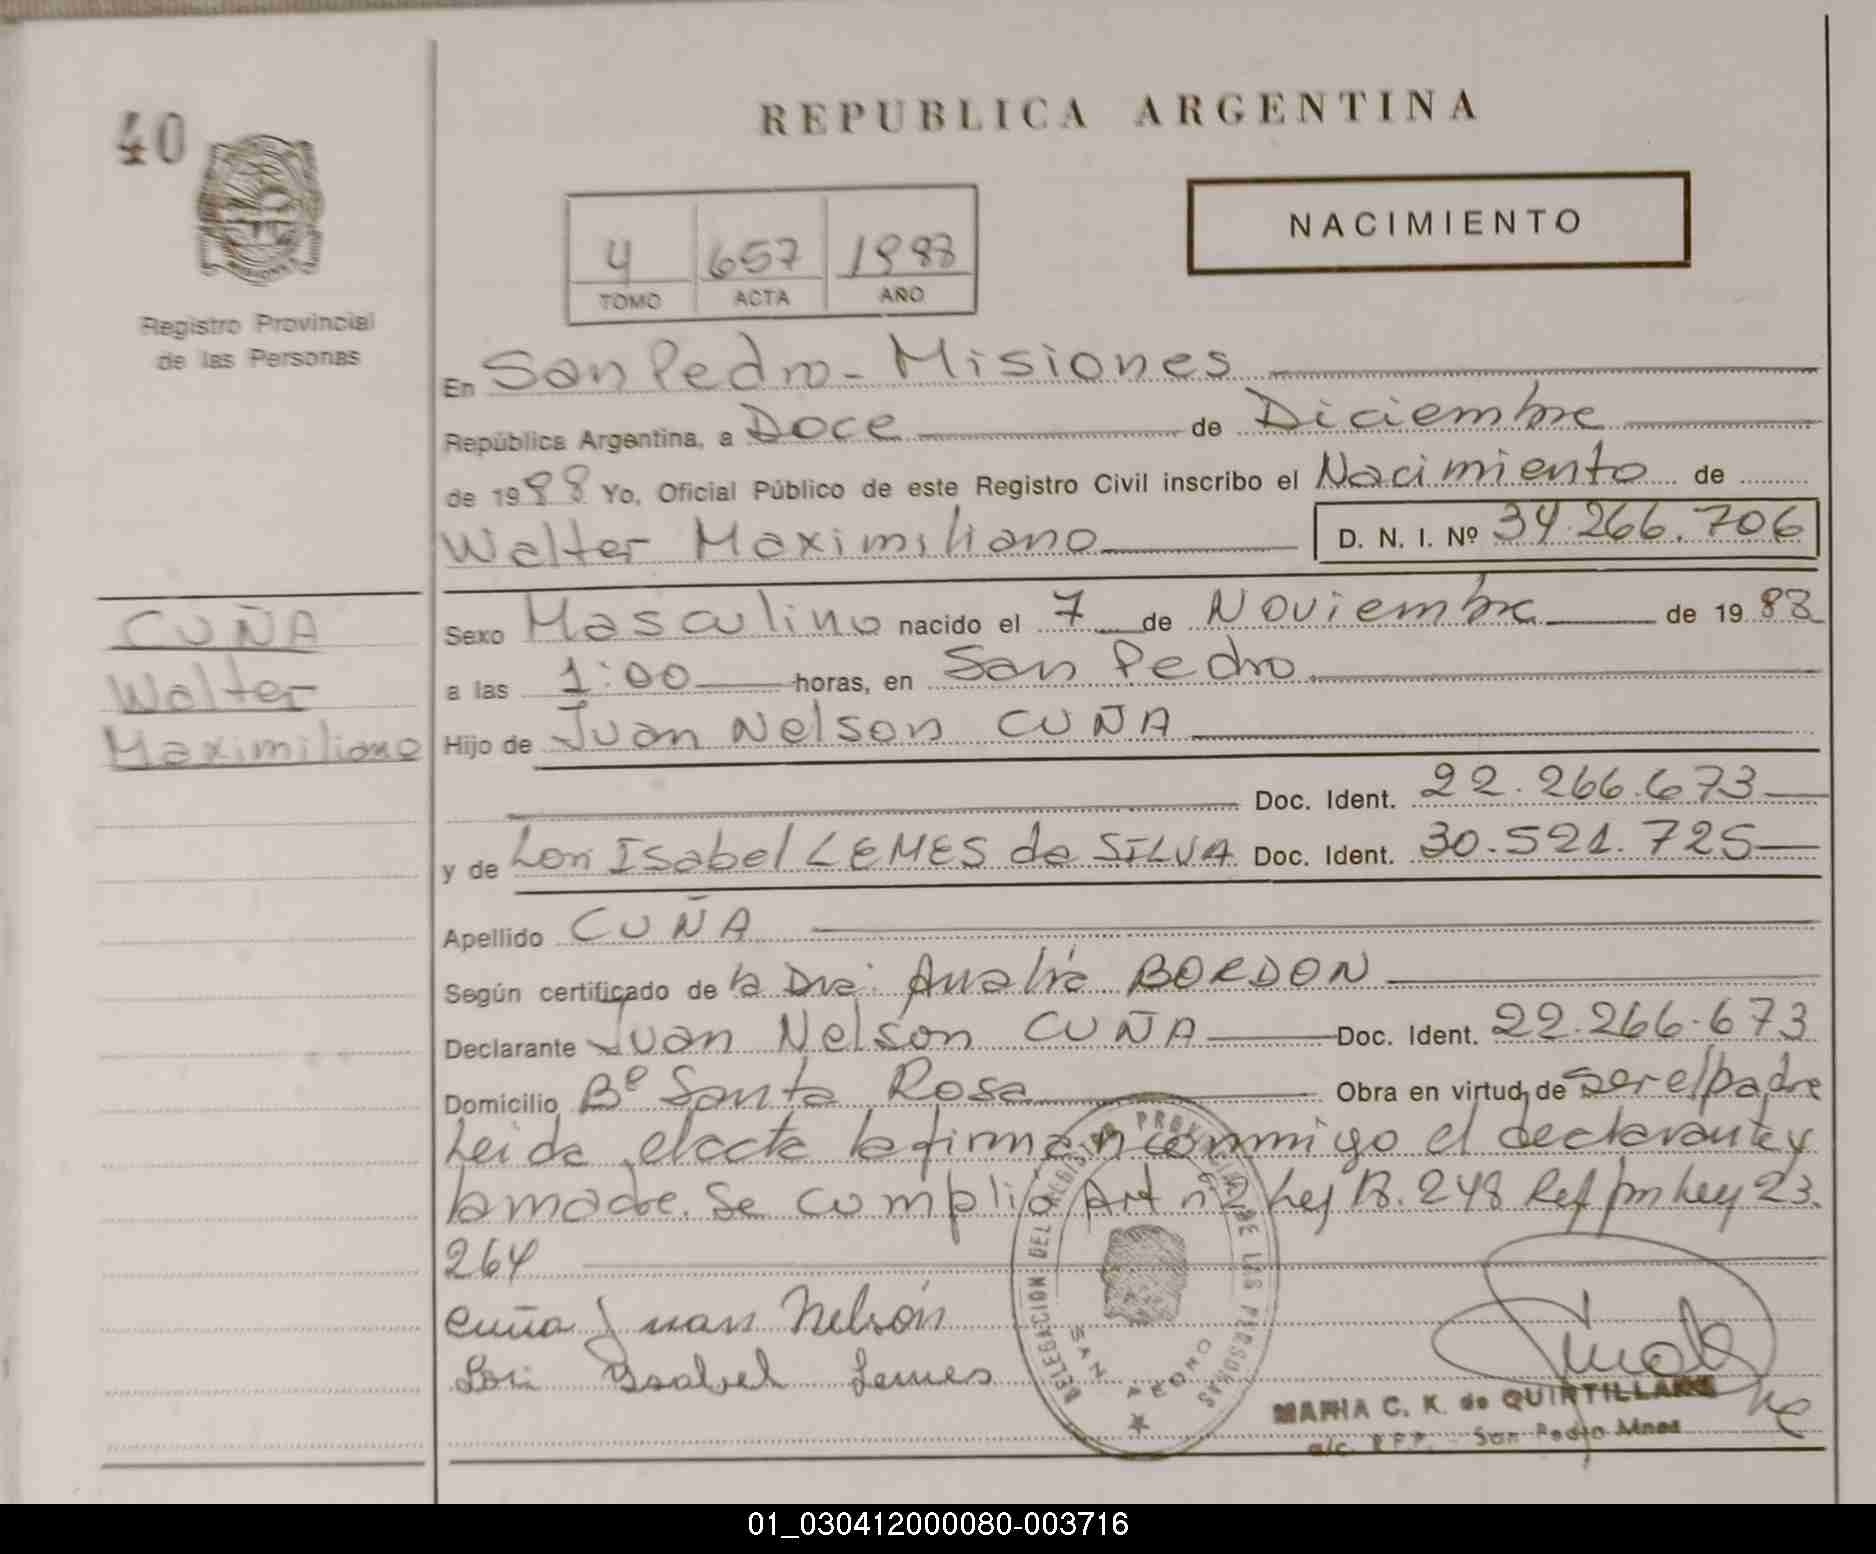 40
REPUBLICA ARGENTINA
NACIMIENTO
4 657 1988
TOMO ACTA AÑO
Registro Provincial
de las Personas
En San Pedro - Misiones
República Argentina, a Doce de Diciembre
de 1988 Yo, Oficial Público de este Registro Civil inscribo el Nacimiento de
Walter Maximiliano D. N. I. Nº 34.266.706
CUÑA
Walter
Maximiliano
Sexo Masculino nacido el 7 de Noviembre de 1988
a las 1:00 horas, en San Pedro
Hijo de Juan Nelson CUÑA
Doc. Ident. 22.266.673
y de Lori Isabel LEMES da SILVA Doc. Ident. 30.521.725
Apellido CUÑA
Según certificado de la Dra. Analía BORDON
Declarante Juan Nelson CUÑA Doc. Ident. 22.266.673
Domicilio Bº Santa Rosa Obra en virtud de ser el padre
Leida el acta la firman conmigo el declarante y
la madre. Se cumplió Art nº 2 Ley 18.248 Ref por Ley 23.
264
Cuña Juan Nelsón
Lori Ysabel Lemes
DELEGACION DEL REGISTRO PROVINCIAL DE LAS PERSONAS
SAN PEDRO
MARIA C. K. de QUINTILLAN
a/c. R.P.P. - San Pedro Mnes
01_030412000080-003716